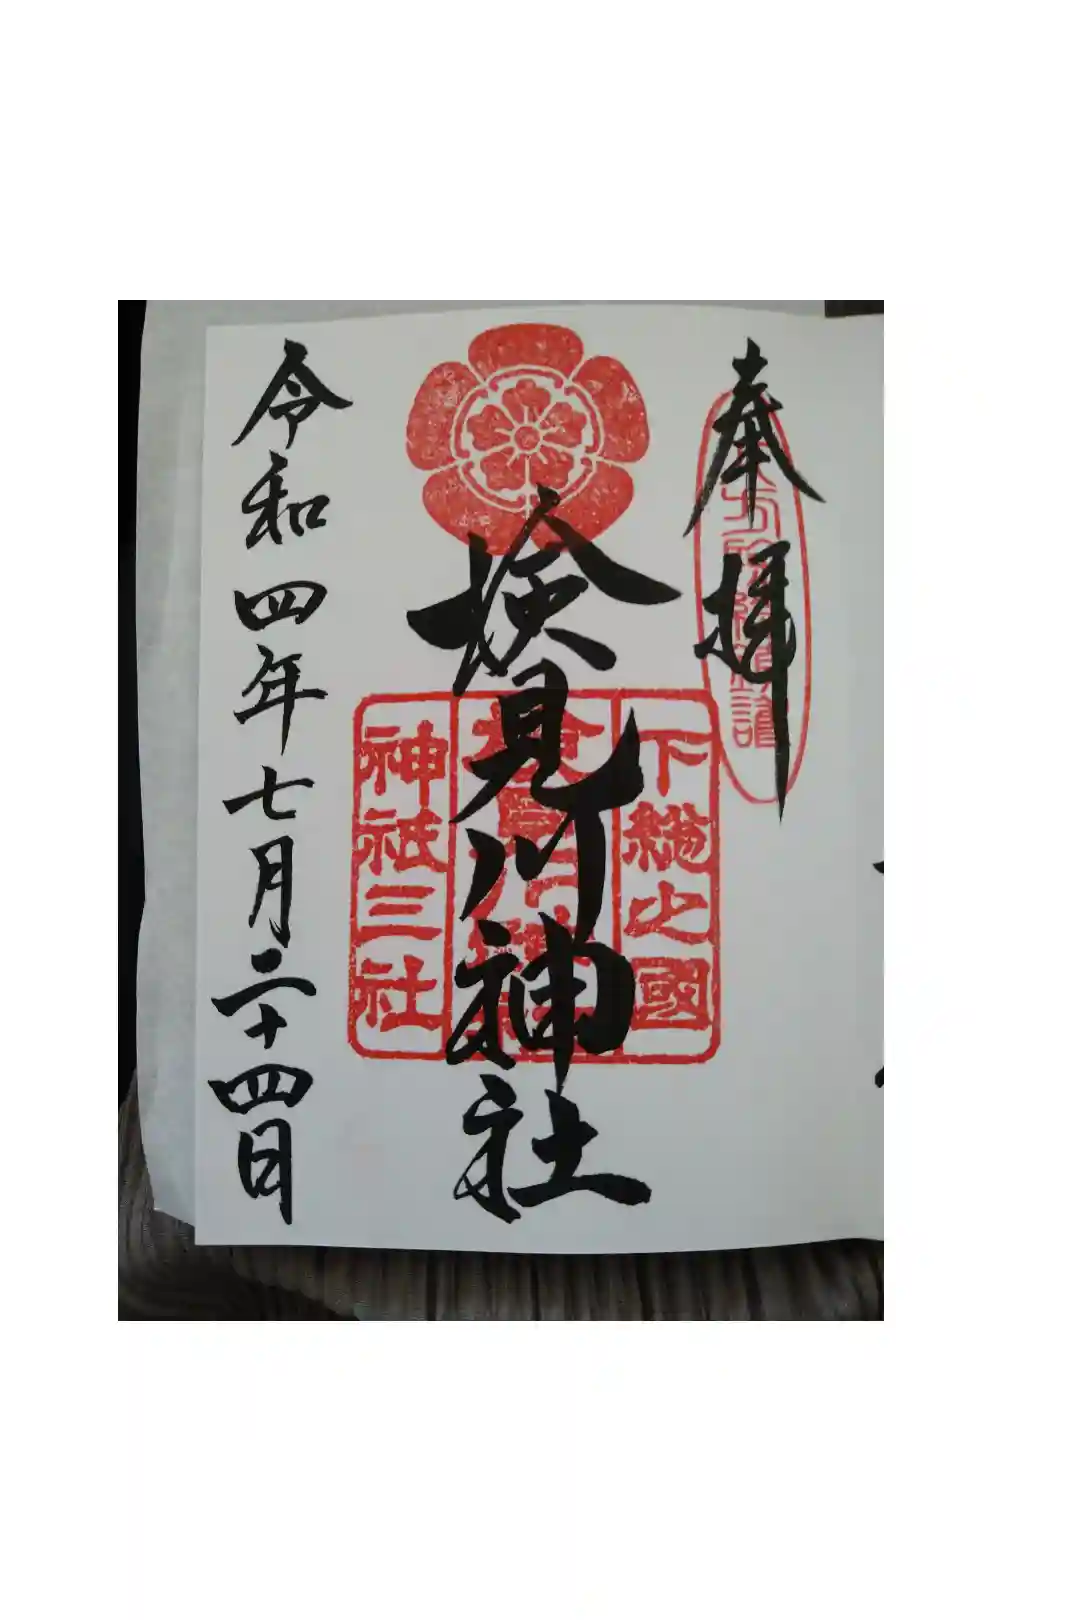 奉拝
下総之國
検見川神社
神祇三社
令和四年七月二十四日